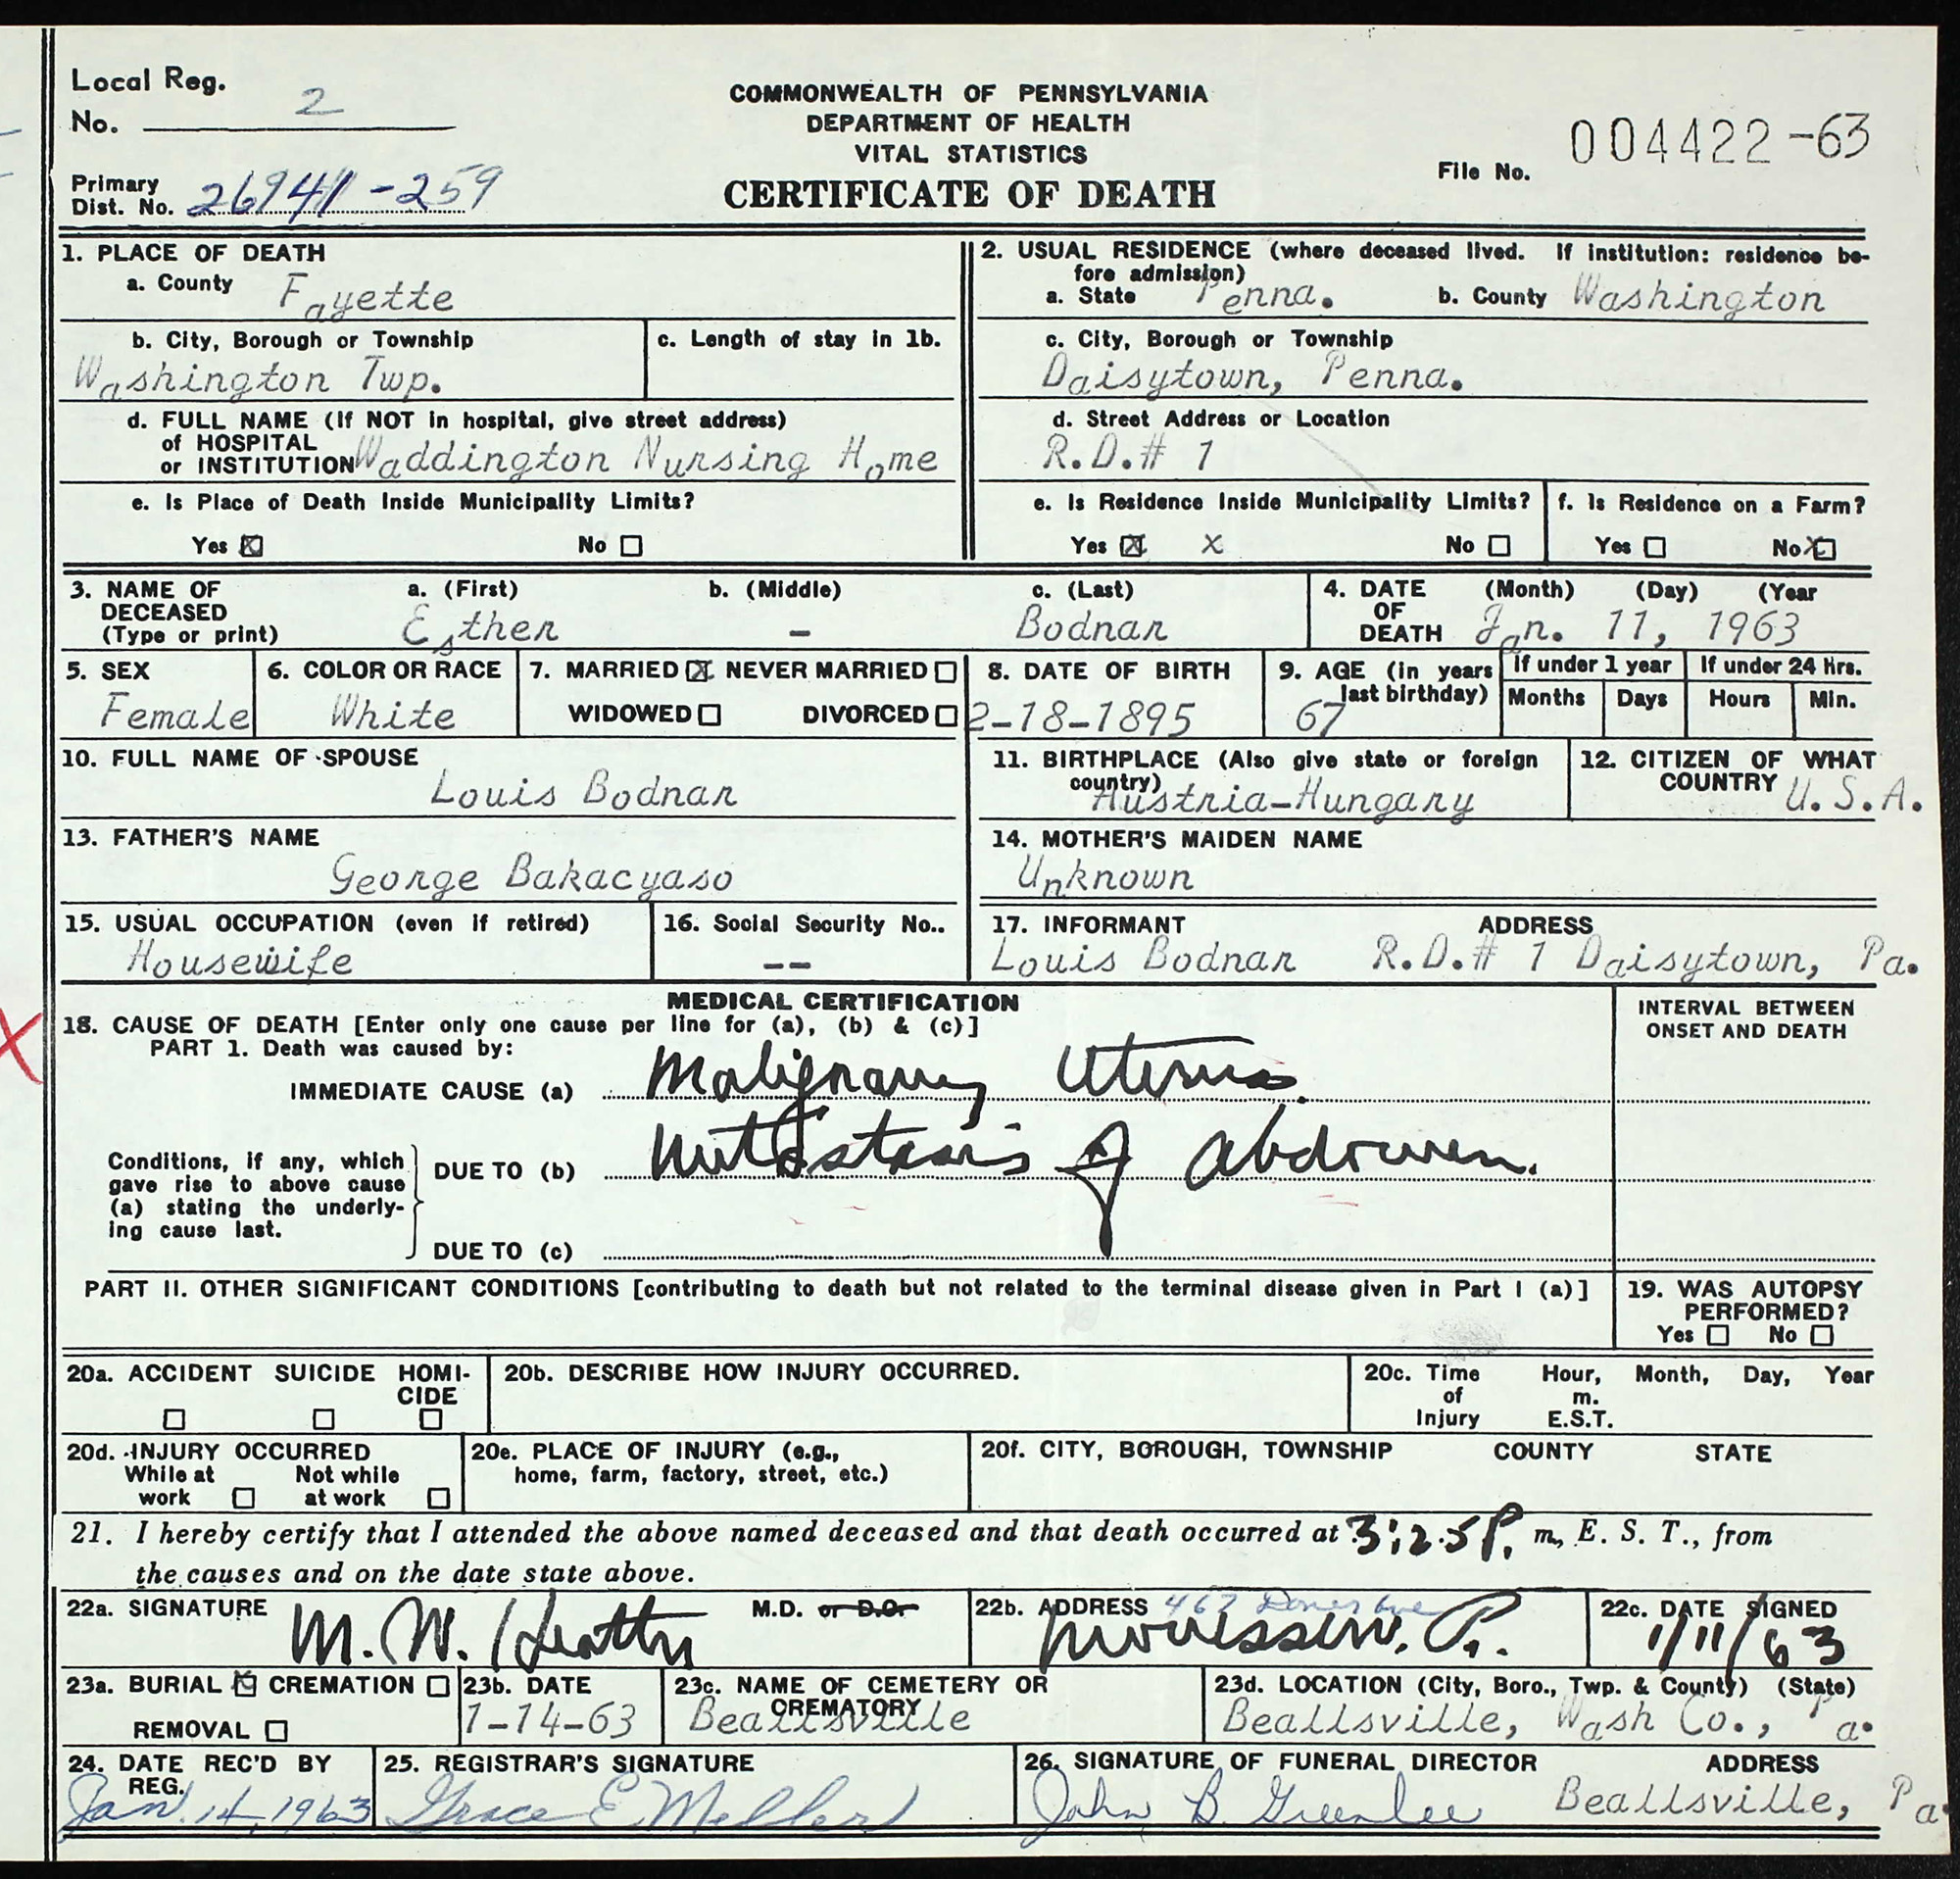 Local Reg.
No. 2
COMMONWEALTH OF PENNSYLVANIA
DEPARTMENT OF HEALTH
VITAL STATISTICS
CERTIFICATE OF DEATH
File No. 004422-63
Primary
Dist. No. 26941-259
1. PLACE OF DEATH
a. County Fayette
b. City, Borough or Township
Washington Twp.
c. Length of stay in 1b.
d. FULL NAME (If NOT in hospital, give street address)
of HOSPITAL
or INSTITUTION Waddington Nursing Home
e. Is Place of Death Inside Municipality Limits?
Yes ☒ No ☐
2. USUAL RESIDENCE (where deceased lived. If institution: residence be-
fore admission)
a. State Penna. b. County Washington
c. City, Borough or Township
Daisytown, Penna.
d. Street Address or Location
R.D.# 1
e. Is Residence Inside Municipality Limits?
Yes ☒ X No ☐
f. Is Residence on a Farm?
Yes ☐ No ☒
3. NAME OF
DECEASED
(Type or print)
a. (First) b. (Middle) c. (Last)
Esther - Bodnar
4. DATE (Month) (Day) (Year
OF
DEATH Jan. 11, 1963
5. SEX
Female
6. COLOR OR RACE
White
7. MARRIED ☒ NEVER MARRIED ☐
WIDOWED ☐ DIVORCED ☐
8. DATE OF BIRTH
2-18-1895
9. AGE (in years
last birthday)
67
If under 1 year
Months Days
If under 24 Hrs.
Hours Min.
10. FULL NAME OF SPOUSE
Louis Bodnar
11. BIRTHPLACE (Also give state or foreign
country)
Austria-Hungary
12. CITIZEN OF WHAT
COUNTRY U.S.A.
13. FATHER'S NAME
George Bakacyaso
14. MOTHER'S MAIDEN NAME
Unknown
15. USUAL OCCUPATION (even if retired)
Housewife
16. Social Security No..
--
17. INFORMANT ADDRESS
Louis Bodnar R.D.# 1 Daisytown, Pa.
MEDICAL CERTIFICATION
18. CAUSE OF DEATH [Enter only one cause per line for (a), (b) & (c)]
PART 1. Death was caused by:
INTERVAL BETWEEN
ONSET AND DEATH
IMMEDIATE CAUSE (a) Malignancy Uterus.
Conditions, if any, which
gave rise to above cause
(a) stating the underly-
ing cause last.
DUE TO (b) Metastasis of abdomen.
DUE TO (c)
PART II. OTHER SIGNIFICANT CONDITIONS [contributing to death but not related to the terminal disease given in Part I (a)]
19. WAS AUTOPSY
PERFORMED?
Yes ☐ No ☐
20a. ACCIDENT SUICIDE HOMI-
CIDE
☐ ☐ ☐
20b. DESCRIBE HOW INJURY OCCURRED.
20c. Time Hour, Month, Day, Year
of m.
Injury E.S.T.
20d. INJURY OCCURRED
While at Not while
work ☐ at work ☐
20e. PLACE OF INJURY (e.g.,
home, farm, factory, street, etc.)
20f. CITY, BOROUGH, TOWNSHIP COUNTY STATE
21. I hereby certify that I attended the above named deceased and that death occurred at 3:25 P. m, E. S. T., from
the causes and on the date state above.
22a. SIGNATURE M. W. M.D. or D.O.
22b. ADDRESS 467
Monessen, Pa.
22c. DATE SIGNED
1/11/63
23a. BURIAL ☒ CREMATION ☐
REMOVAL ☐
23b. DATE
1-14-63
23c. NAME OF CEMETERY OR
CREMATORY
Beallsville
23d. LOCATION (City, Boro., Twp. & County) (State)
Beallsville, Wash Co., Pa.
24. DATE REC'D BY
REG.
Jan. 14, 1963
25. REGISTRAR'S SIGNATURE
Grace E Meller
26. SIGNATURE OF FUNERAL DIRECTOR ADDRESS
John B. Greenlee Beallsville, Pa